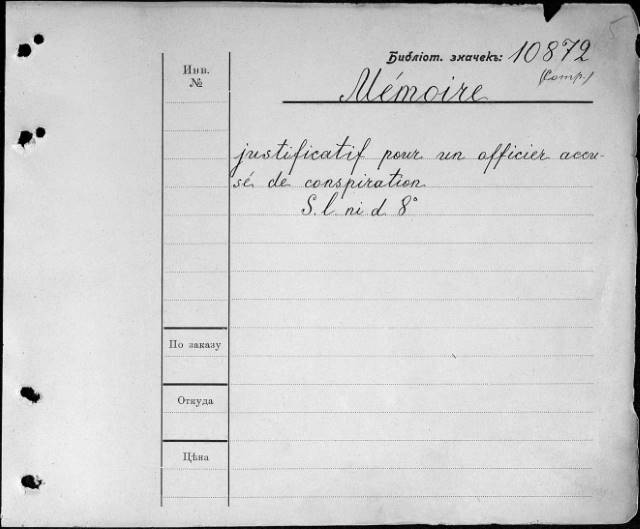 5
Библіот. значекъ: 10872
(Comp.)
Инв.
№
Mémoire
justificatif pour un officier accu-
sé de conspiration
S. l. ni d 8°
По заказу
Откуда
Цѣна